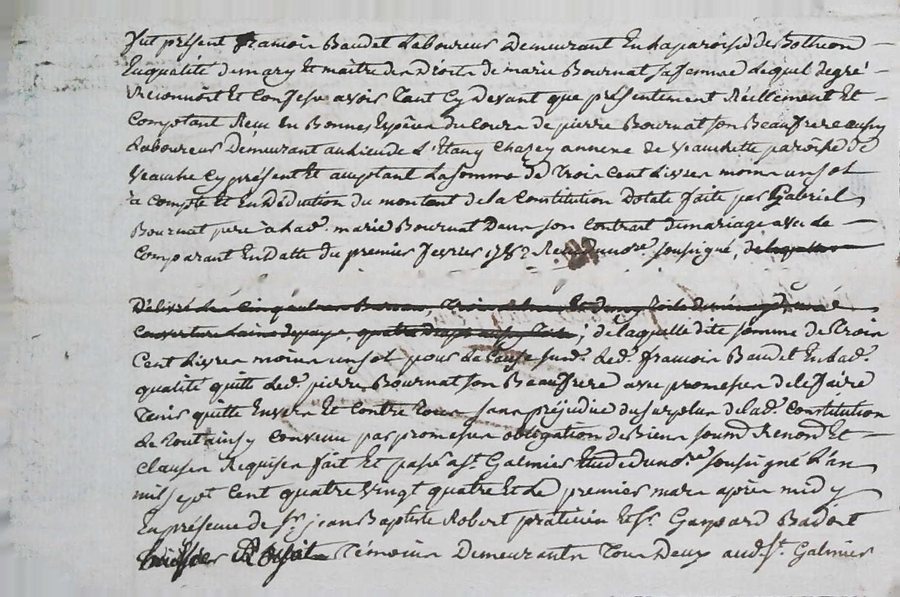 fut présent francoir Baudet Laboureur Demeurant En La paroisse de Botheon
En qualité de mary Et maitre des Droits de marie Bournat sa femme Lequel de gré
Reconnoit Et Confesse avoir Tant Cy Devant que présentement Réellement Et
Comptant Recu En Bonnes Espéces du Cours de pierre Bournat son Beaufrere aussy
Laboureur Demeurant au Lieu de L'Etang Chazey annexe de Veauchette paroisse de
Veauche Cy présent Et acceptant La somme de Trois Cent Livres moins un sol
à Compte Et En Déduction du montant de la Constitution Dotale faite par Gabriel
Bournat pere à Lad. marie Bournat Dans son Contrat de mariage avec le
Comparant En Datte du premier fevrier 1782 Recu du no.re soussigné,
Couverture Laine du pays, quatre draps ; de laquelle dite somme de Trois
Cent Livres moins un sol pour La Cause susd. Led. francois Baudet En Lad.
qualité quitte Led. pierre Bournat son Beaufrere avec promesse de le faire
Tenir quitte Envers Et Contre Tous sans préjudice du surplus de lad. Constitution
Le Tout ainsy Convenu par promesses obligation de Biens soumis Renond Et
Clauses Requises fait Et passé a St. Galmier Etude du no.re soussigné L'an
mil sept Cent quatre vingt quatre Et Le premier mars après midy
En présence de Sr. jean Baptiste Robert praticien Et Sr. Gaspard Badort
Témoins Demeurants Tous Deux aud. St. Galmier